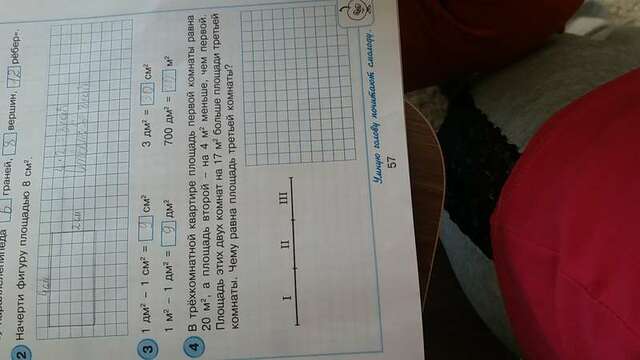 параллелепипеда 6 граней, 8 вершин, 12 рёбер».
2 Начерти фигуру площадью 8 см².
4см
2см
3 1 дм² – 1 см² = 9 см² 3 дм² = см²
1 м² – 1 дм² = 9 дм² 700 дм² = м²
4 В трёхкомнатной квартире площадь первой комнаты равна
20 м², а площадь второй – на 4 м² меньше, чем первой.
Площадь этих двух комнат на 17 м² больше площади третьей
комнаты. Чему равна площадь третьей комнаты?
I II III
Умную голову почитают смолоду.
57